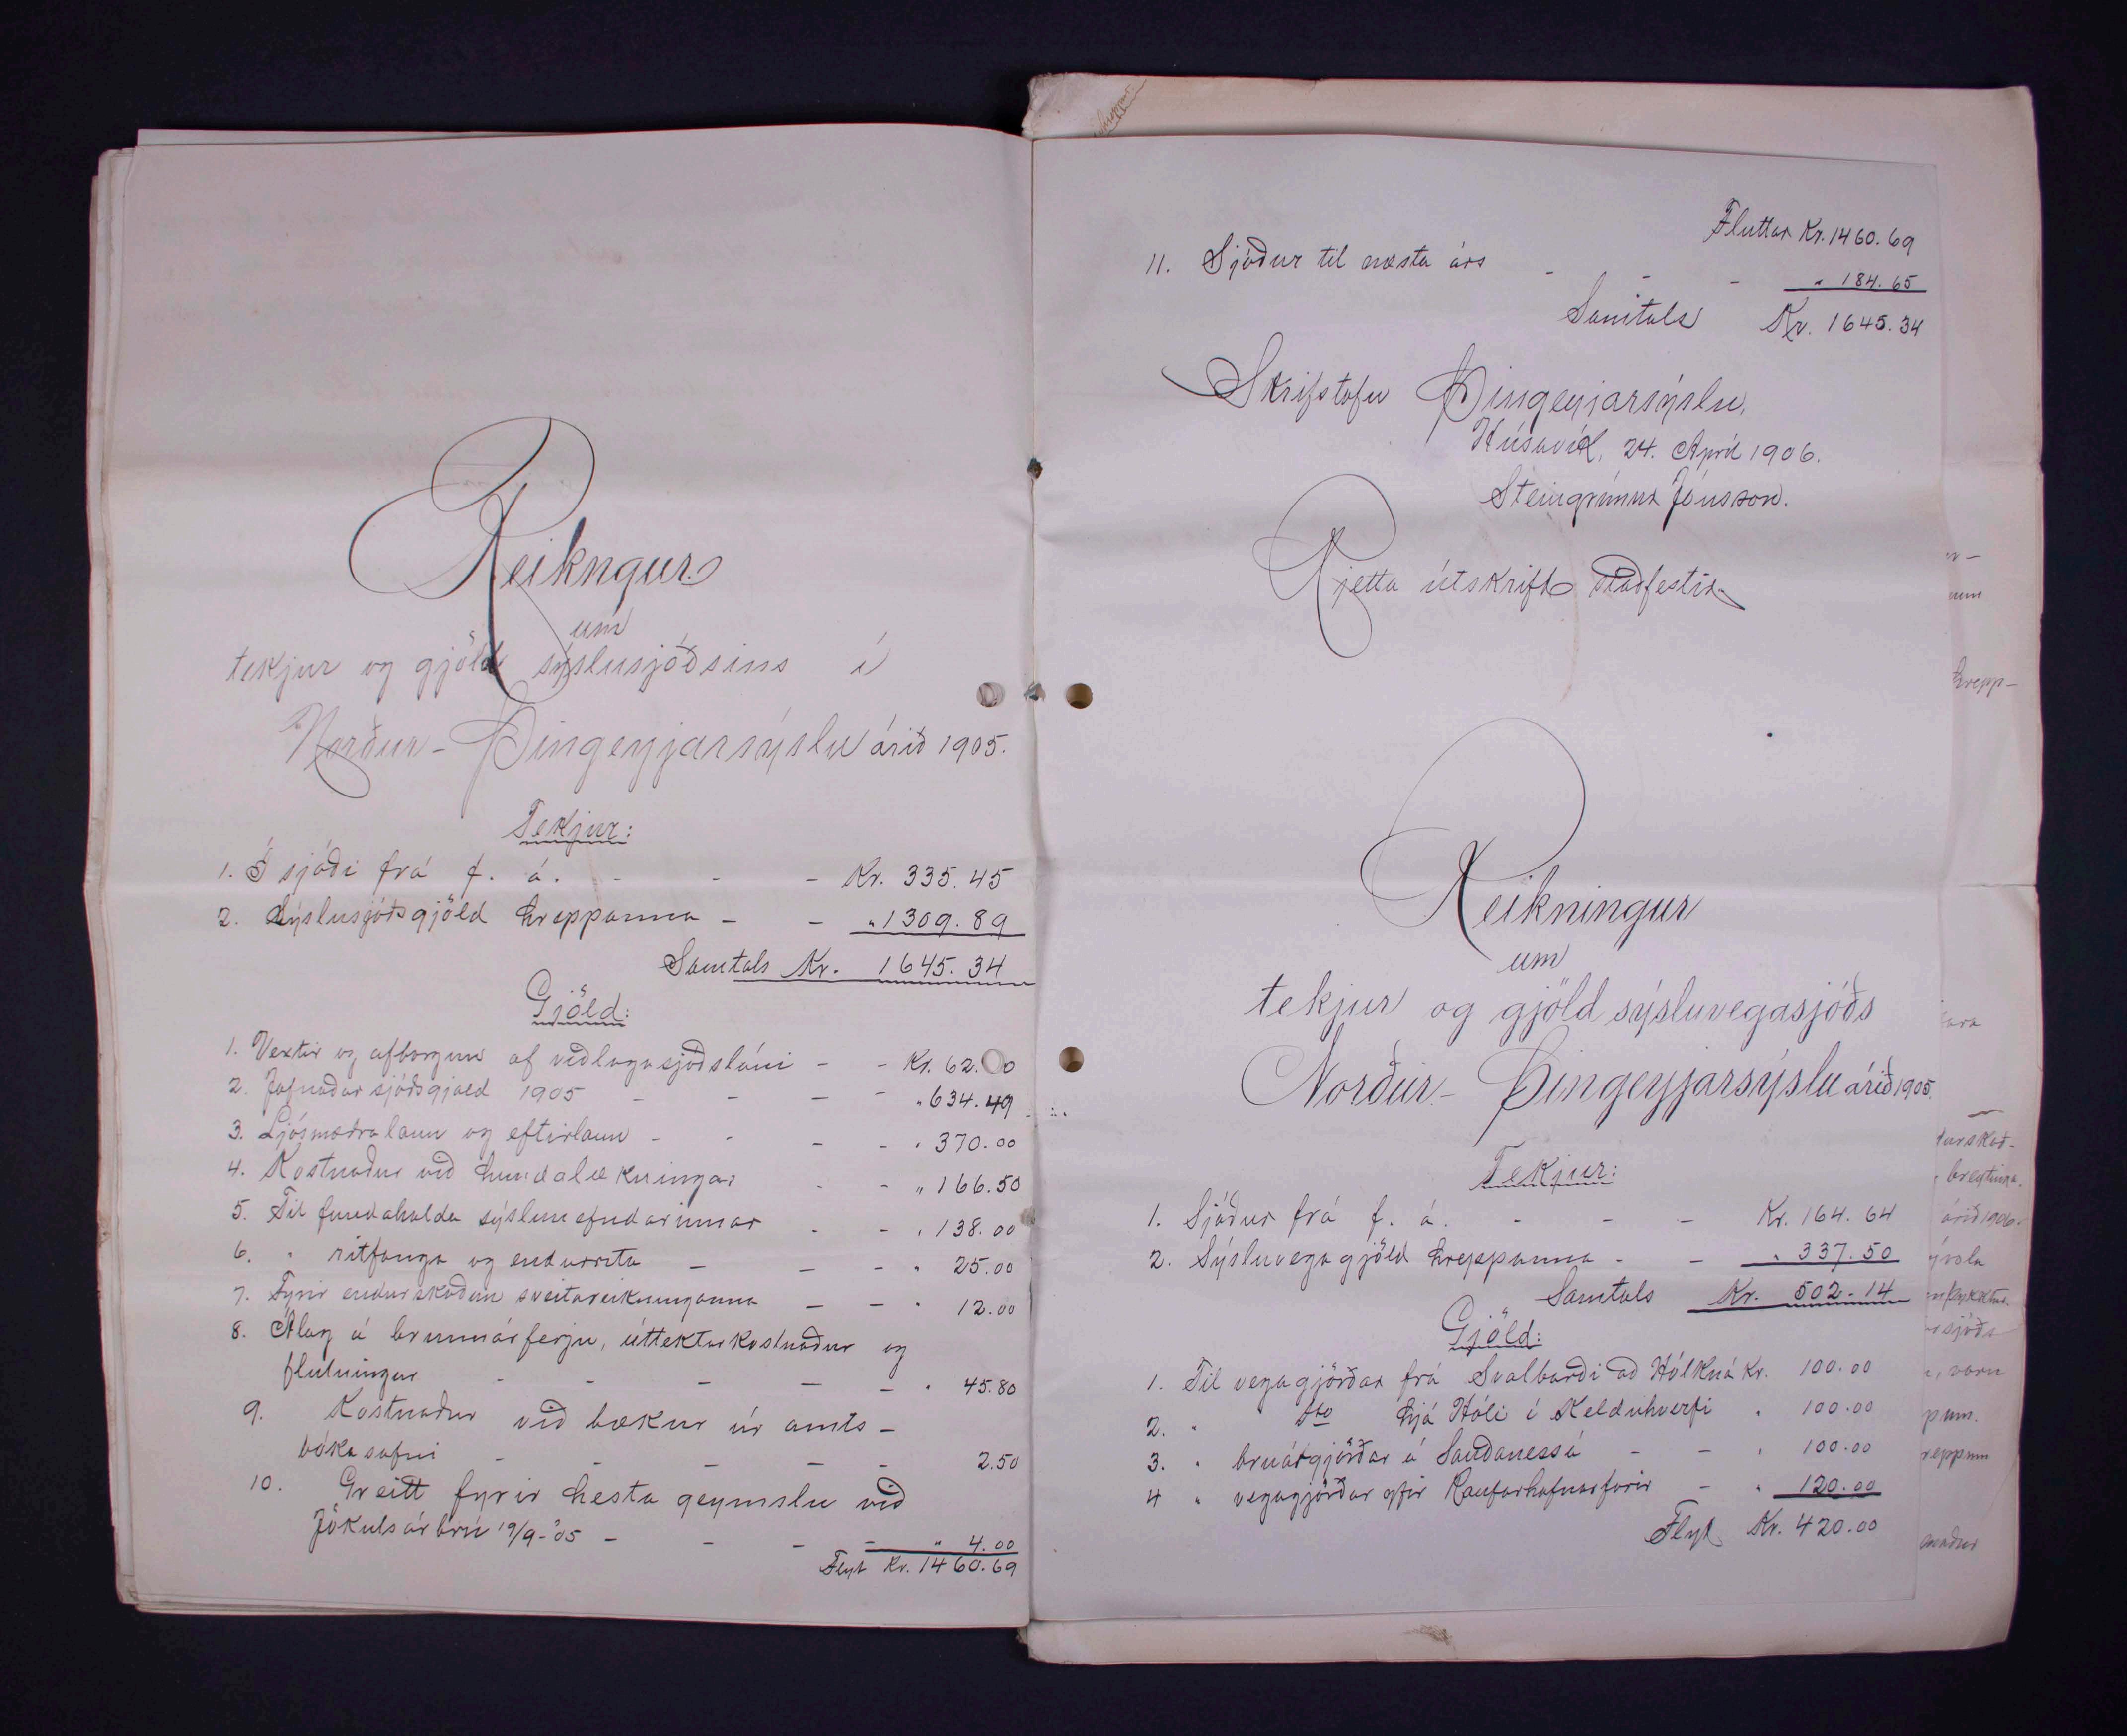 Reikngur
um
tekjur og gjöld sýslusjóðsins í
Norður-Þingeyjarsýslu árið 1905.
Tekjur:
1. Í sjóði frá f. á. - - - Kr. 335.45
2. Sýslusjóðsgjöld hreppanna - - " 1309.89
Samtals Kr. 1645.34
Gjöld:
1. Vextir og afborgun af viðlagasjóðsláni - - Kr. 62.00
2. Jafnaðarsjóðsgjald 1905 - - - - " 634.49
3. Ljósmæðralaun og eftirlaun - - - - " 370.00
4. Kostnaður við hundalækningar - - " 166.50
5. Til fundahalda sýslunefndarinnar - - " 138.00
6. " ritfanga og endurrita - - - " 25.00
7. Fyrir endurskoðun sveitareikninganna - - " 12.00
8. Álag á brunnárferju, úttektarkostnaður og
flutningur - - - - - " 45.80
9. Kostnaður við bækur úr amts-
bókasafni - - - - - 2.50
10. Greitt fyrir hesta geymslu við
Jökulsárbrú 19/9-"05 - - - - " 4.00
Flyt Kr. 1460.69
Fluttar Kr. 1460.69
11. Sjóður til næsta árs - - - " 184.65
Samtals Kr. 1645.34
Skrifstofu Þingeyjarsýslu,
Húsavík, 24. Apríl 1906.
Steingrímur Jónsson.
Rjetta útskrift staðfestir
Reikningur
um
tekjur og gjöld sýsluvegasjóðs
Norður-Þingeyjarsýslu árið 1905.
Tekjur:
1. Sjóður frá f. á. - - - Kr. 164.64
2. Sýsluvegagjöld hreppanna - - " 337.50
Samtals Kr. 502.14
Gjöld:
1. Til vegagjörðar frá Svalbarði að Hölkná Kr. 100.00
2. " Dto hjá Hóli í Kelduhverfi " 100.00
3. " brúargjörðar á Sandanessá - - " 100.00
4 " vegagjörðar yfir Raufarhafnarforir - " 120.00
Flyt Kr. 420.00
hrepp-
árið 1906